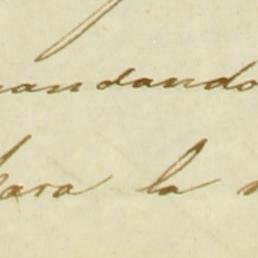 mandando
para la